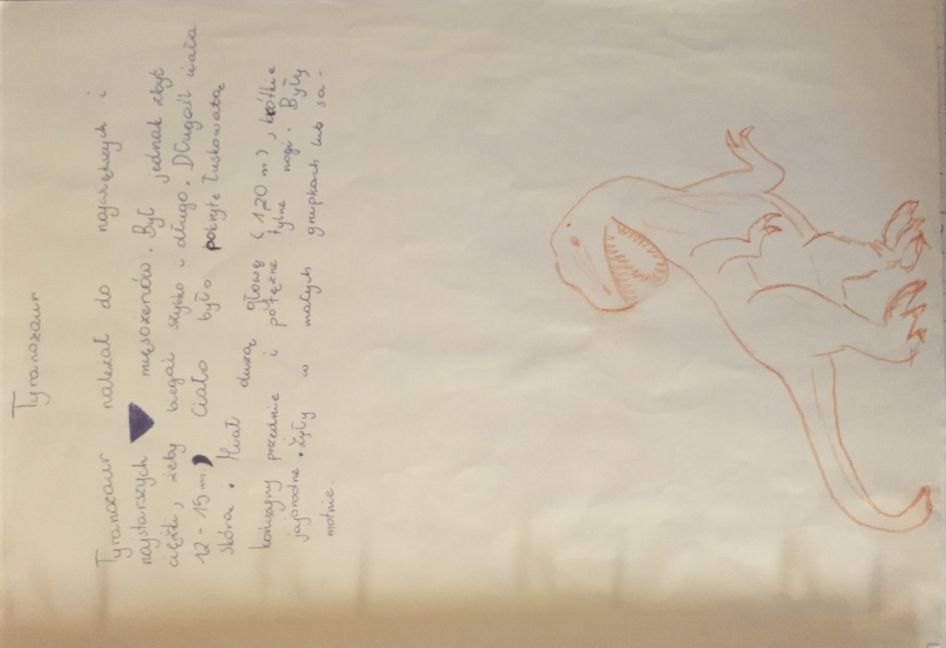 Tyranozaur
Tyranozaur należał do największych i
najstarszych mięsożerców. Był jednak zbyt
ciężki, żeby biegać szybko i długo. Długość ciała
12 - 15 m. Ciało było pokryte łuskowatą
skórą. Miał dużą głowę (1,20 m), krótkie
kończyny przednie i potężne tylne nogi. Były
jajorodne. Żyły w małych grupkach lub sa-
motnie.